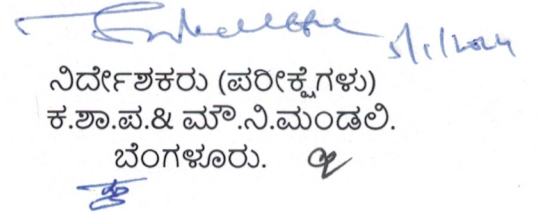 5/1/2024
ನಿರ್ದೇಶಕರು (ಪರೀಕ್ಷೆಗಳು)
ಕ.ಶಾ.ಪ.& ಮೌ.ನಿ.ಮಂಡಲಿ.
ಬೆಂಗಳೂರು.